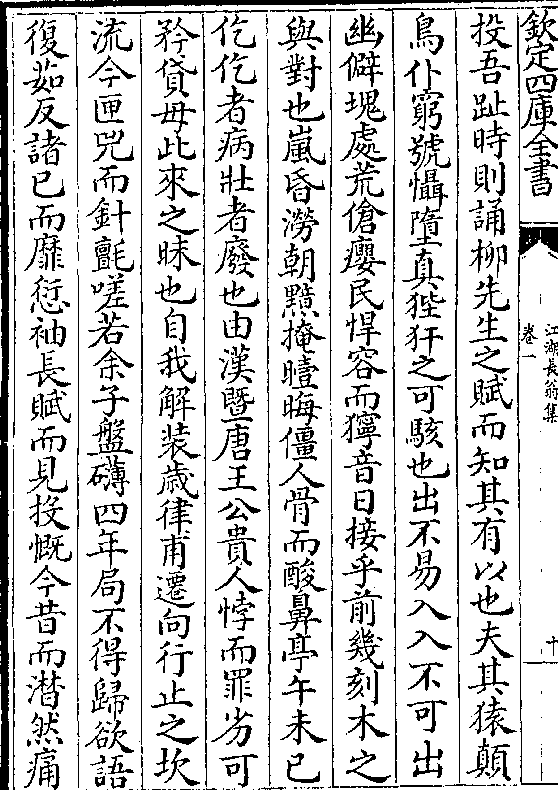 欽定四庫全書
江湖長翁集
卷一
十
投吾趾時則誦柳先生之賦而知其有以也夫其猿顛
鳥仆窮號懾墮真狴犴之可駭也出不易入入不可出
幽僻塊處荒傖癭民悍容而獰音日接乎前幾刻木之
與對也嵐昏澇朝黰掩曀晦僵人骨而酸鼻亭午未已
仡仡者病壯者廢也由漢暨唐王公貴人悖而罪劣可
矜貸毋此來之昧也自我解裝歳律甫遷向行止之坎
流今匣兕而針氈嗟若余子盤礴四年局不得歸欲語
復茹反諸已而靡愆袖長賦而見投慨今昔而潸然痛